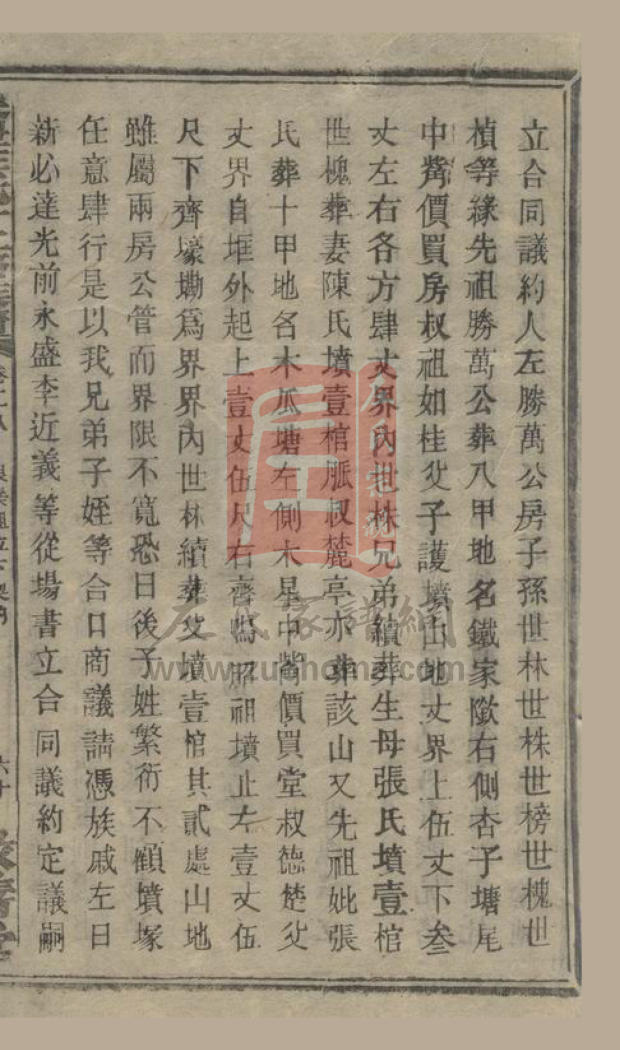 立合同議約人左勝萬公房子孫世林世株世榜世槐世
楨等緣先祖勝萬公葬八甲地名鐵家歘右側杏子塘尾
中嵜價買房叔祖如桂父子護墳山地丈界上伍丈下叁
丈左右各方肆丈界內世株兄弟續葬生母張氏墳壹棺
世槐葬妻陳氏墳壹棺胍叔麓亭亦葬該山又先祖妣張
氏葬十甲地名木瓜塘左側木星中嵜價買堂叔德楚父
丈界自堆外起上壹丈伍尺右齊鳴昭祖墳止左壹丈伍
尺下齊壕塝爲界界內世林續葬父墳壹棺其貳處山地
雖屬兩房公管而界限不寬恐日後子姓繁衍不顧墳塚
任意肆行是以我兄弟子姪等合口商議請憑族戚左日
新必達光前永盛李近義等從場書立合同議約定議嗣
左氏家譜網
www.zuohome.com